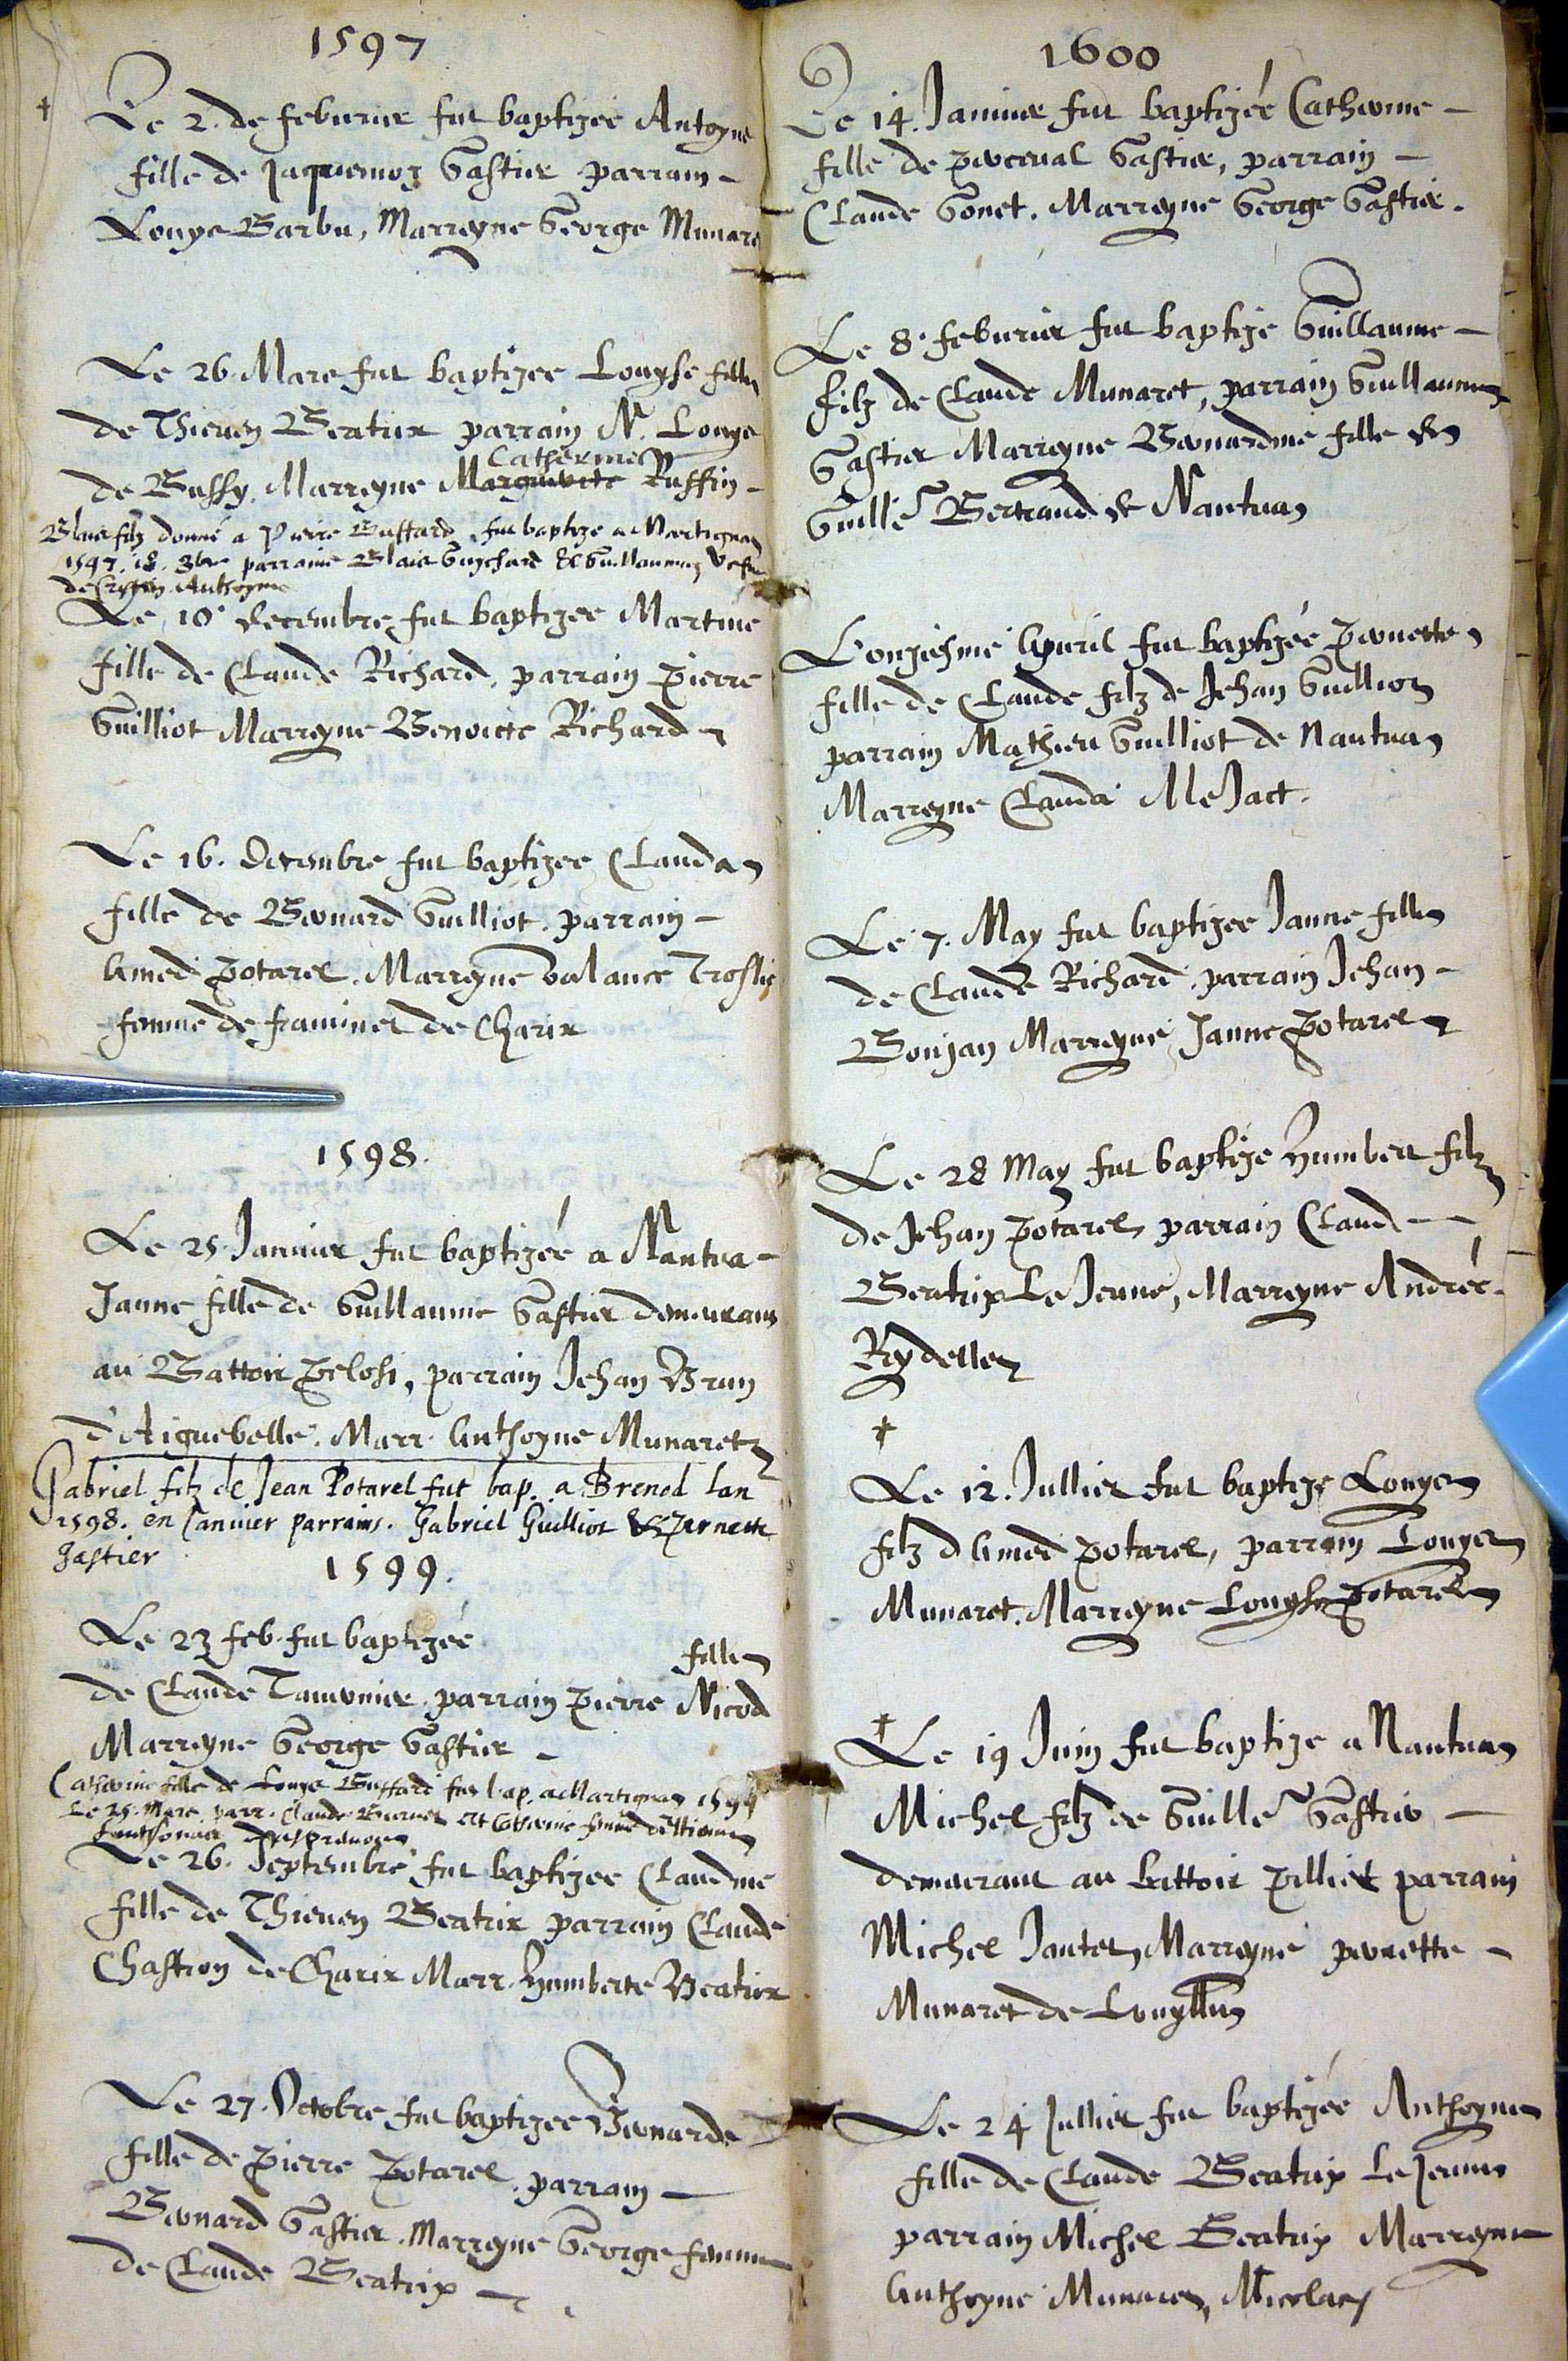 1597
Le 2. de febvrier fut baptizée Antoyne
fille de Jaquemoz Gastier parrain
Louys Barbu, Marreyne George Munare
Le 26. Mars fut baptizée Louyse fille
de Thieven Beatrix parrain N. Louys
Catherine
de Bussy. Marreyne Marguerite Ruffin
Blais filz donné a Pierre Buffard, fut baptize a Martigna
1597. 18. 3bre parrains Blais Guychard & Guillauma
Anthoyne
Le 10 decembre fut baptizée Martine
fille de Claude Richard, parrain Pierre
Guilliot Marreyne Benoicte Richard
Le 16. Decembre fut baptizée Clauda
fille de Bernard Guilliot. parrain
Amed Potarel. Marreyne Valance
femme de de Charix
1598.
Le 25 Janvier fut baptizée a Nantua
Janne fille de Guillaume Gastier demeurant
au Battoir Pelosi, parrain Jehan Brun
d'Aiguebelle. Marr. Anthoyne Munaret
Gabriel filz de Jean Potarel fut bap. a Brenod lan
1598. en Janvier parrains. Gabriel Guilliot & Pernette
Gastier
1599.
Le 23 feb. fut baptizée
fille
de Claude Tavernier. parrain Pierre Nicod
Marreyne George Gastier
Catherine fille de Louys Buffard fut bap. a Martigna 1599
Le 25. Mars. parr. Claude et femme
Le 26. Septembre fut baptizée Claudine
fille de Thieven Beatrix parrain Claude
Chastron de Charix Marr. Humberte Beatrix
Le 27. Octobre fut baptizée Bernarde
fille de Pierre Potarel. parrain
Bernard Gastier. Marreyne George femme
de Claude Beatrix
1600
Le 14. Janvier fut baptizée Catherine
fille de Perceval Gastier, parrain
Claude Gonet. Marreyne George Gastier.
Le 8. febvrier fut baptize Guillaume
filz de Claude Munaret, parrain Guillaume
Gastier Marreyne Bernardine fille de
Guille Bertrand de Nantua
L'onziesme Apvril fut baptizée Pernette
fille de Claude filz de Jehan Guilliot
parrain Mathieu Guilliot de Nantua
Marreyne Clauda MeJact.
Le 7. May fut baptizée Janne fille
de Claude Richard. parrain Jehan
Bonjan Marreyne Janne Potarel
Le 28 May fut baptize Humbert filz
de Jehan Potarel parrain Claud
Beatrix Le Jeune, Marreyne Andrée
Rydelle
Le 12. Jullier fut baptize Louys
filz d Amed Potarel, parrain Louys
Munaret. Marreyne Louyse Potarel
Le 19 Juin fut baptize a Nantua
Michel filz de Guille Gastier
demeurant au battoir Pilliet parrain
Michel Jantet, Marreyne pernette
Munaret de
Le 24 Jullier fut baptizée Anthoyne
fille de Claude Beatrix Le Jeune
parrain Michel Beatrix Marreyne
Anthoyne Munaret, Nicolas